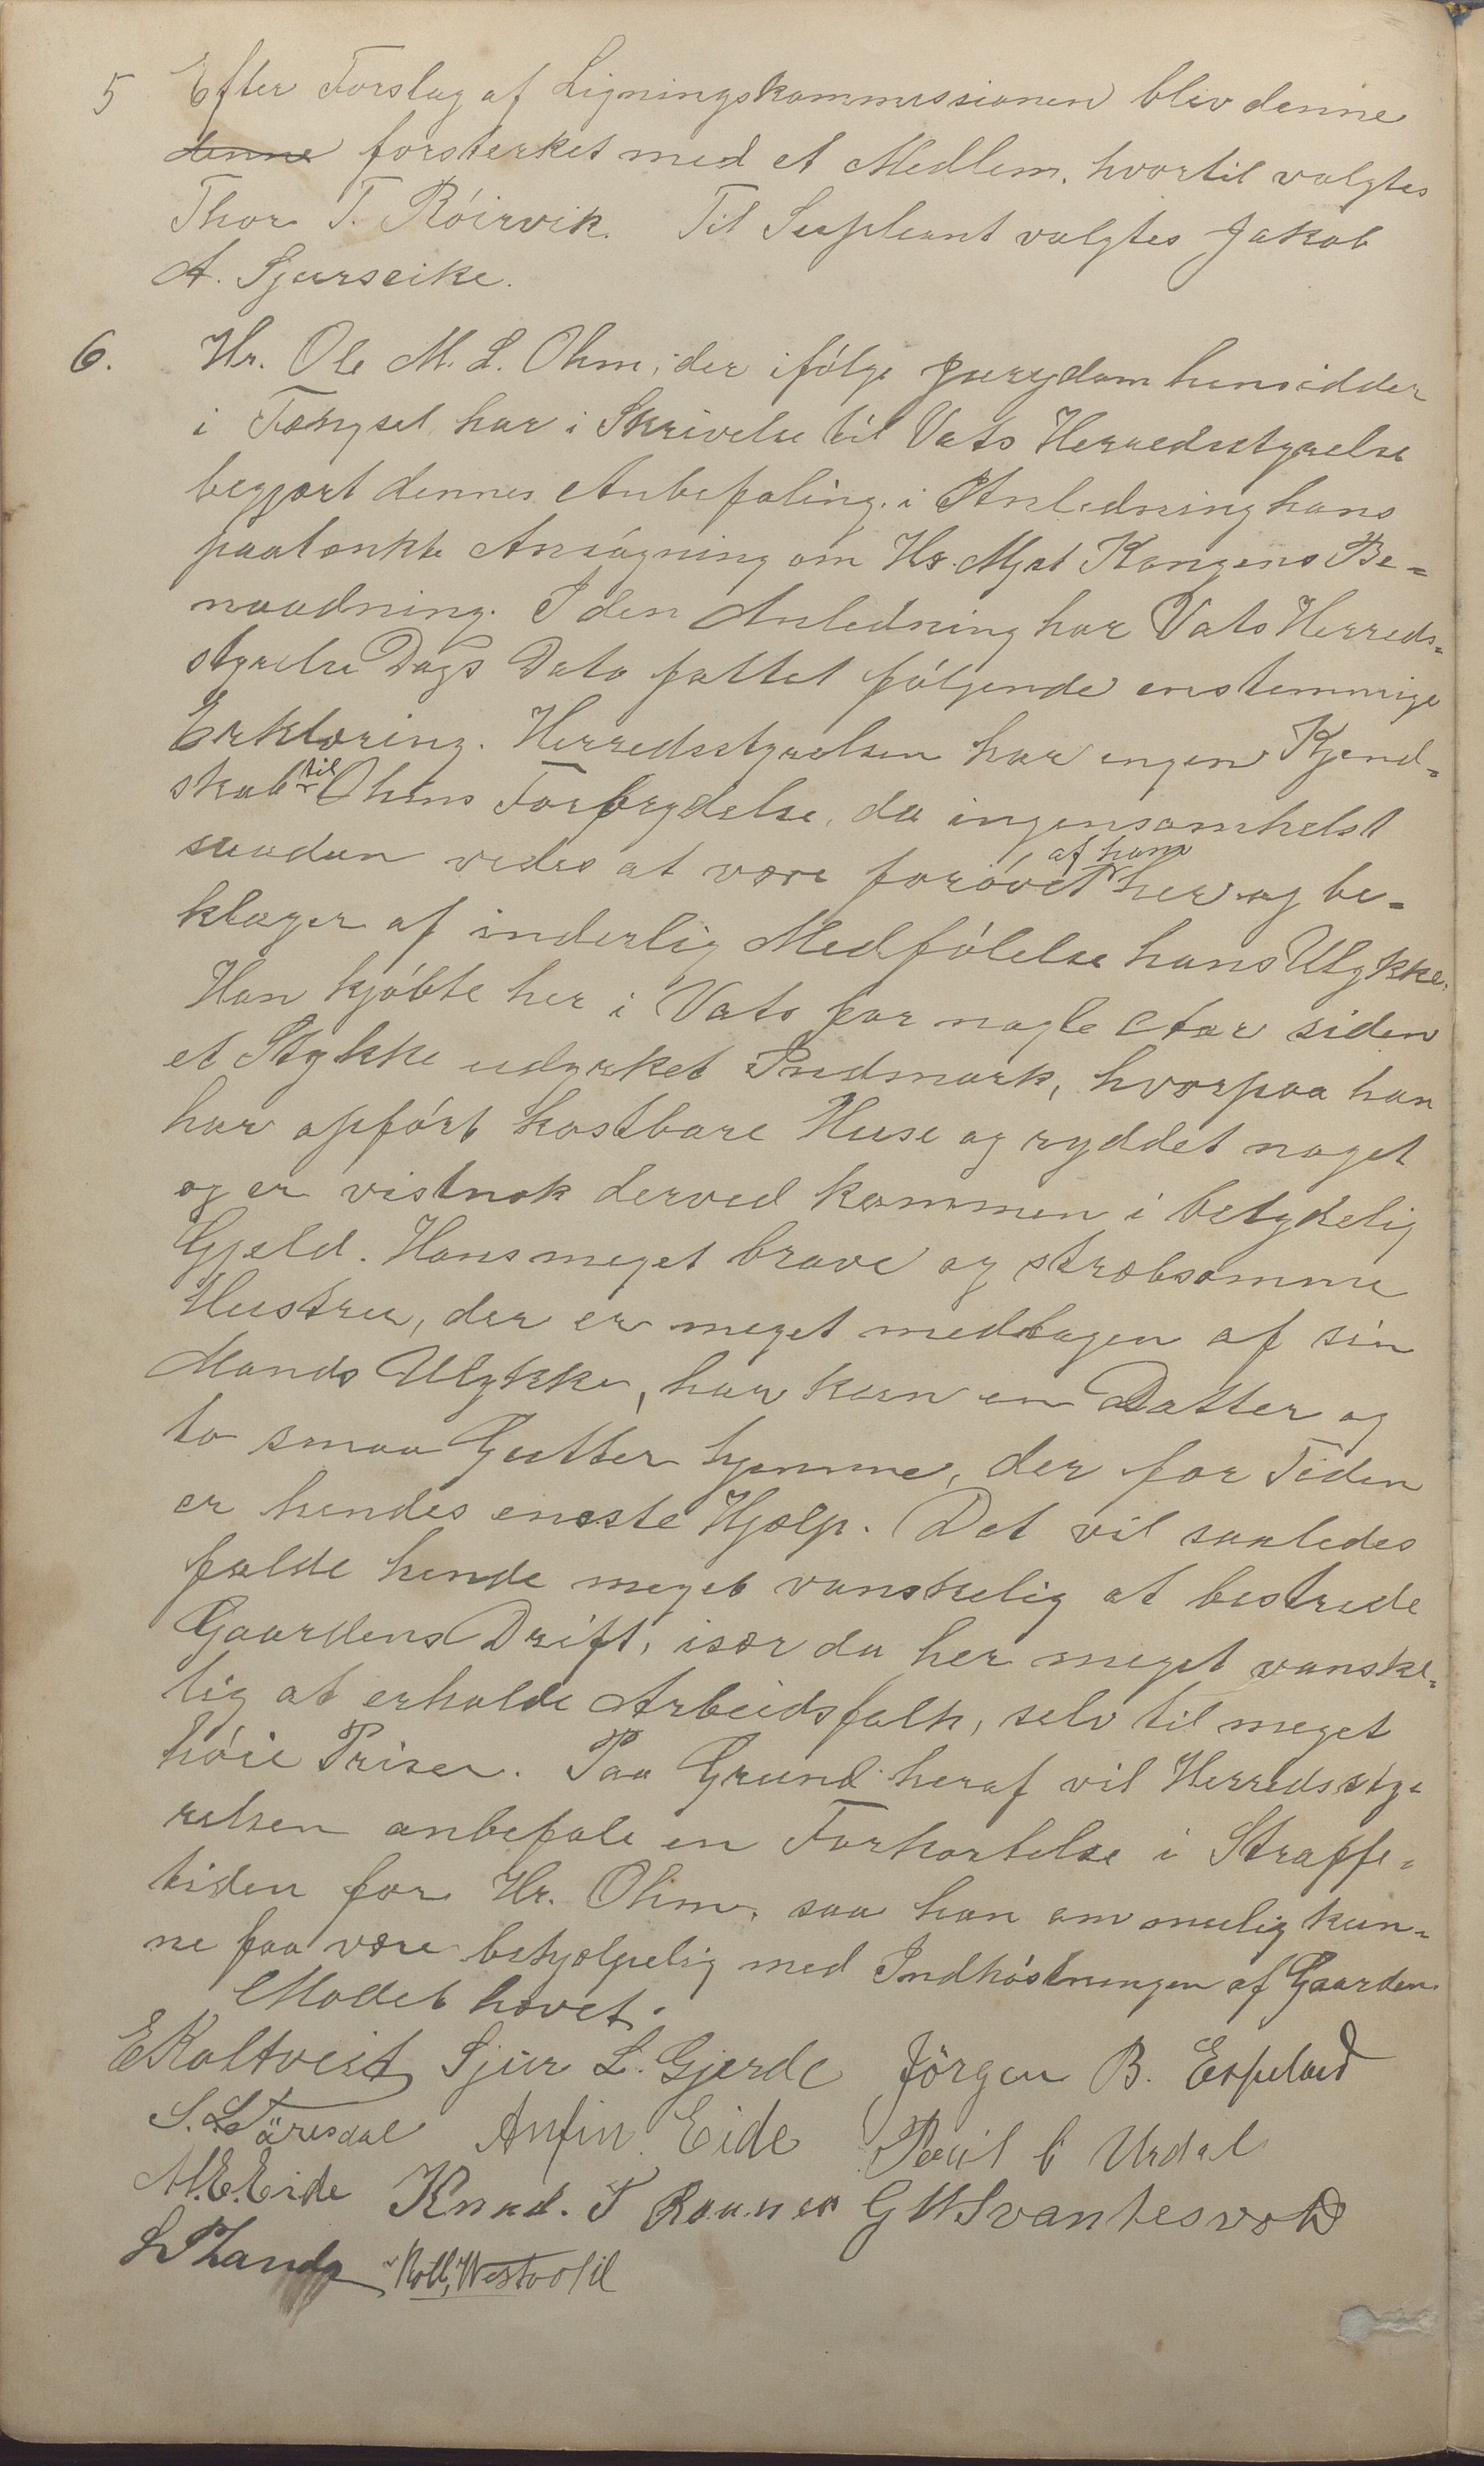 5 Efter Forslag af Ligningskommissionen blev denne
denne forsterket med et Medlem, hvortil valgtes
Thor T. Róirvik. Til Supleant valgtes Jakob
A. Sjurseike.
6. Hr. Ole M. L. Ohm, der ifólge Jurydom hensidder
i Fængsel, har i Skrivelse til Vats Herredsstyrelse
begjært dennes Anbefaling i Anledning hans
paatænkte Ansógning om Hs. Mjst Kongens Be=
naadning. I den Anledning har Vats Herreds=
styrelse Dags Dato fattet fólgende enstemmige
Erklæring. Herredsstyrelsen har ingen Kjend=
skab til Ohms Forbrydelse, da ingensomhelst
saadan vides at være foróvet af ham her og be=
klager af inderlig Medfólelse hans Ulykke.
Han kjóbte her i Vats for nogle Aar siden
et Stykke udyrket Indmark, hvorpaa han
har opfórt kostbare Huse og ryddet noget
og er vistnok derved kommen i betydelig
Gjæld. Hans meget brave og stræbsomme
Hustru, der er meget medtagen af sin
Mands Ulykke, har kun en Datter og
to smaa Gutter hjemme, der for Tiden
er hendes eneste Hjælp. Det vil saaledes
falde hende meget vanskelig at bestride
Gaardens Drift, især da her meget vanske=
lig at erholde Arbeidsfolk, selv til meget
hóie Priser. Paa Grund heraf vil Herredssty=
relsen anbefale en Forkortelse i Straffe=
tiden for Hr. Ohm, saa han om mulig kun=
ne faa være behjælpelig med Indhóstningen af Gaarden.
Modet hævet.
E Koltveit Sjur L. Gjerde Jörgen B. Espeland
S. L. Aarsdal Anfin Eide Poul C Urdal
M. E. Eide Knud. T Raunes G W Svantesvold
Koll. Westvold